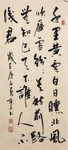 千里黄云白日曛北风
吹雁雪纷纷莫愁前路
无知己天下谁人不
识君